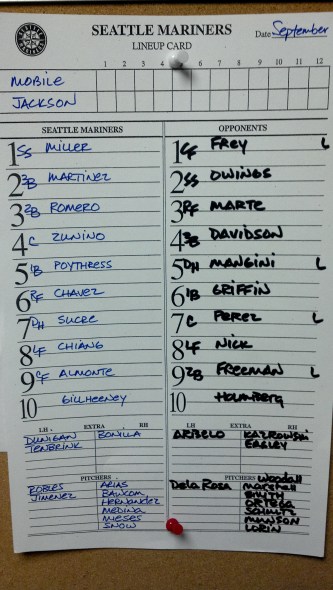 SEATTLE MARINERS
LINEUP CARD
Date September
1 2 3 4 5 6 7 8 9 10 11 12
MOBILE
JACKSON
SEATTLE MARINERS
1 SS MILLER
2 3B MARTINEZ
3 2B ROMERO
4 C ZUNINO
5 1B POYTHRESS
6 RF CHAVEZ
7 DH SUCRE
8 LF CHIANG
9 CF ALMONTE
10 GILLHEENEY
LH EXTRA RH
DUNIGAN BONILLA
TENBRINK
PITCHERS
ROBLES ARIAS
JIMENEZ BAWCOM
HERNANDEZ
MEDINA
MIESES
SNOW
OPPONENTS
1 CF FREY L
2 SS OWINGS
3 RF MARTE
4 3B DAVIDSON
5 DH MANGINI L
6 1B GRIFFIN
7 C PEREZ L
8 LF NICK
9 2B FREEMAN L
10 HOLMBERG
LH EXTRA RH
ARIBELO KAZROWSKI
EASLEY
PITCHERS Woodall
Dela Rosa MARSHALL
SMITH
ORTEGA
SCHMIDT
MUNSON
LORIN